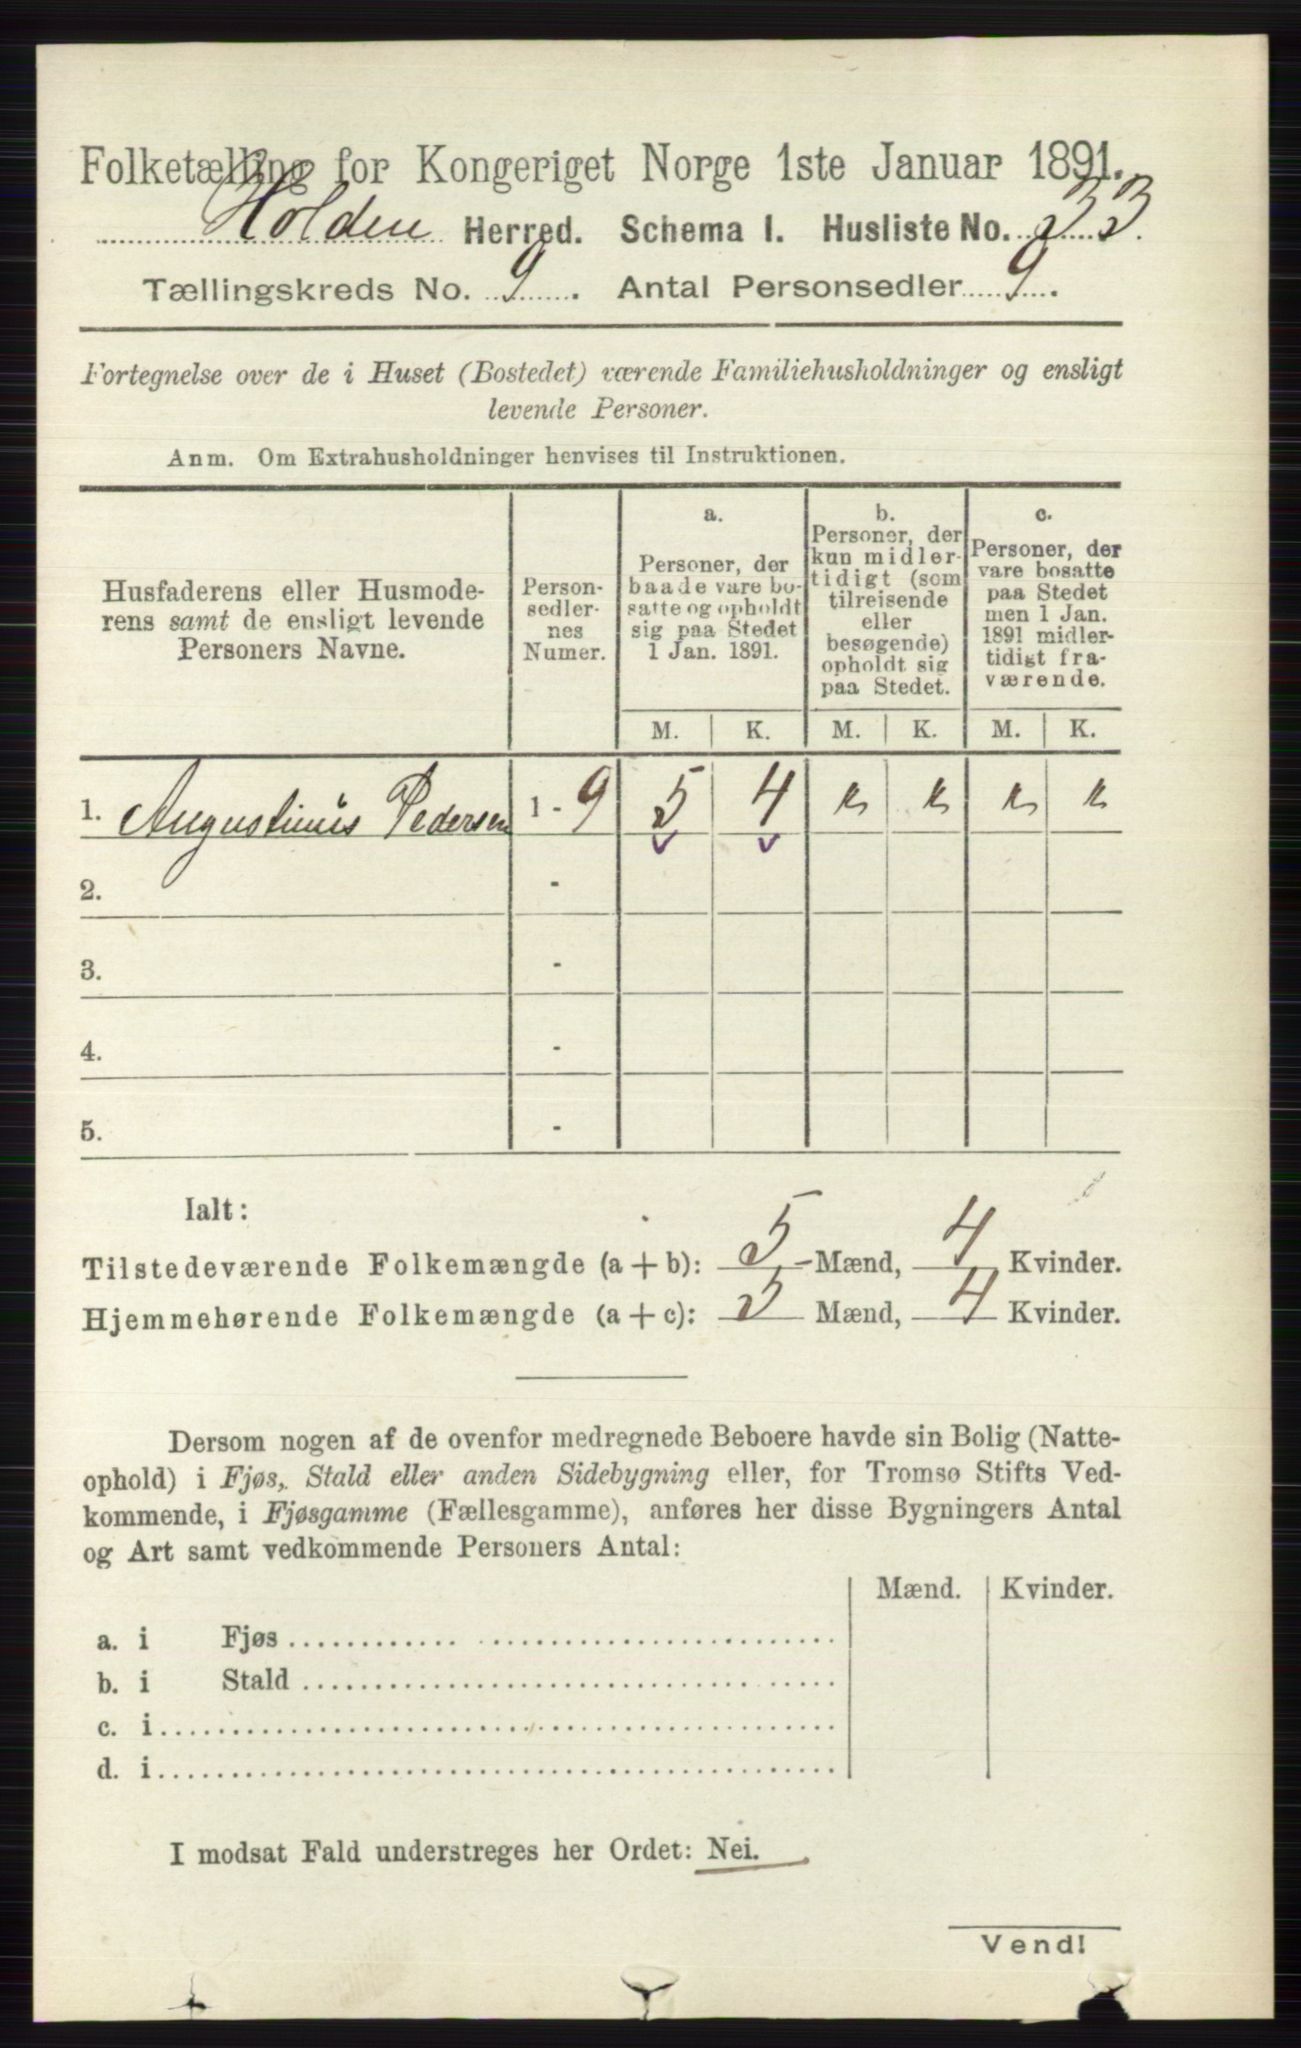 Folketælling for Kongeriget Norge 1ste Januar 1891.
Holden Herred. Schema I. Husliste No. 33.
Tællingskreds No. 9. Antal Personsedler 9.
Fortegnelse over de i Huset (Bostedet) værende Familiehusholdninger og ensligt
levende Personer.
Anm. Om Extrahusholdninger henvises til Instruktionen.
Husfaderens eller Husmode-
rens samt de ensligt levende
Personers Navne.
Person-
sedler-
nes
Numer.
a.
Personer, der
baade vare bo-
satte og opholdt
sig paa Stedet
1 Jan. 1891.
b.
Personer, der
kun midler-
tidigt (som
tilreisende
eller
besøgende)
opholdt sig
paa Stedet.
c.
Personer, der
vare bosatte
paa Stedet
men 1 Jan.
1891 midler-
tidigt fra-
værende.
M. K. M. K. M. K.
1. Augustinus Pedersen 1 - 9 5 4
2. -
3. -
4. -
5. -
Ialt:
Tilstedeværende Folkemængde (a + b): 5 - Mænd, 4 Kvinder.
Hjemmehørende Folkemængde (a + c): 5 Mænd, 4 Kvinder.
Dersom nogen af de ovenfor medregnede Beboere havde sin Bolig (Natte-
ophold) i Fjøs, Stald eller anden Sidebygning eller, for Tromsø Stifts Ved-
kommende, i Fjøsgamme (Fællesgamme), anføres her disse Bygningers Antal
og Art samt vedkommende Personers Antal:
Mænd. Kvinder.
a. i Fjøs
b. i Stald
c. i
d. i
I modsat Fald understreges her Ordet: Nei.
Vend!